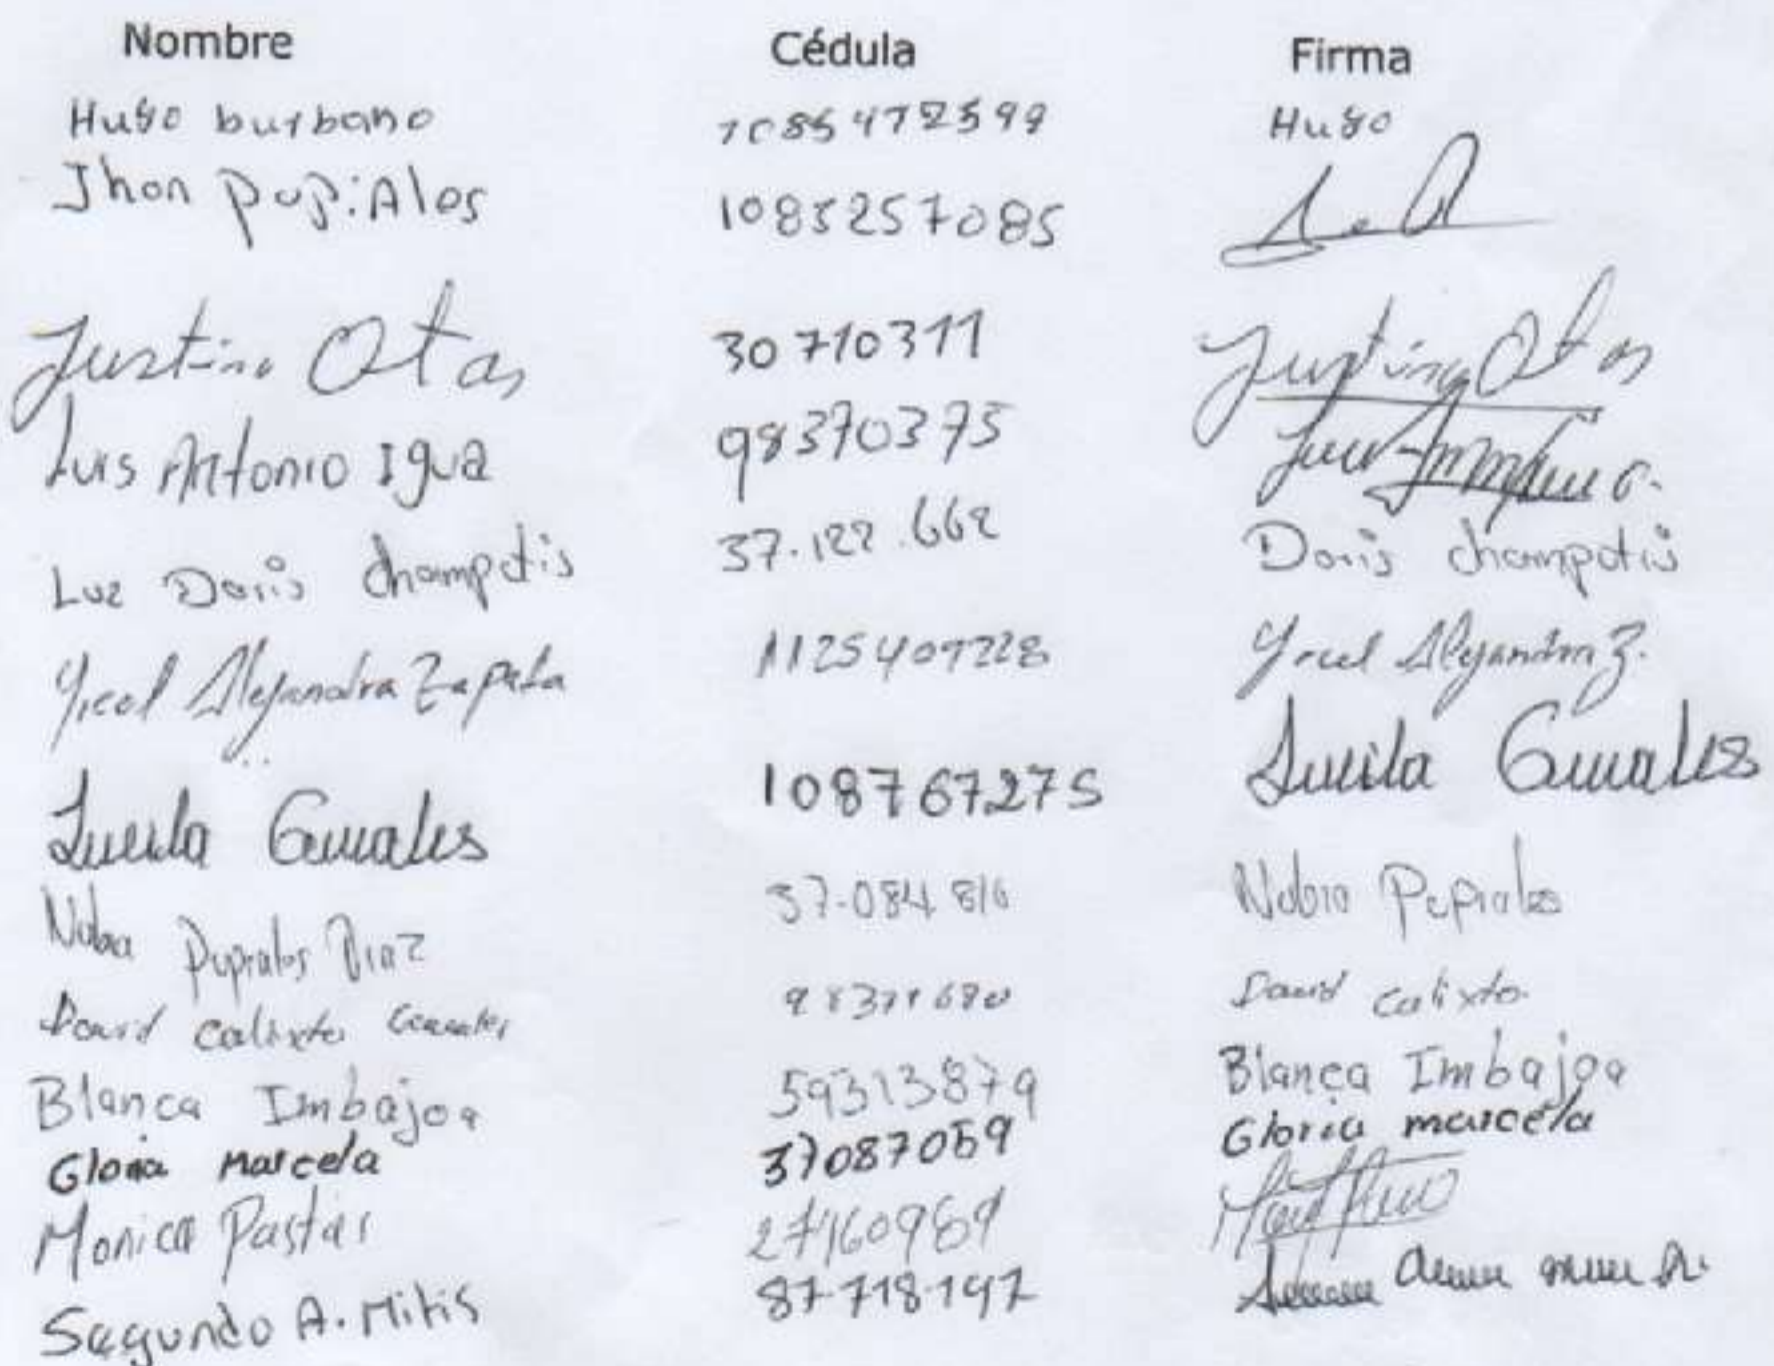 Nombre Cédula Firma
Hugo burbano 1085472599 Hugo
Jhon pupiAles 1085257085
Justina Otas 30710311 Justina Otas
Luis Antonio Igua 98370375
Luz Doris Champutis 37.122.662 Doris Champutis
Yicel Alejandra Zapata 1125407228 Yicel Alejandra Z.
Lucila Canales 108767275 Lucila Canales
Nubia Pupiales Diaz 37.084 816 Nubia Pupiales
David Calixto 98371680 David Calixto
Blanca Imbajoa 59313879 Blanca Imbajoa
Gloria Marcela 37087059 Gloria marcela
Monica Pastas 27160989
Segundo A. Mitis 87718197